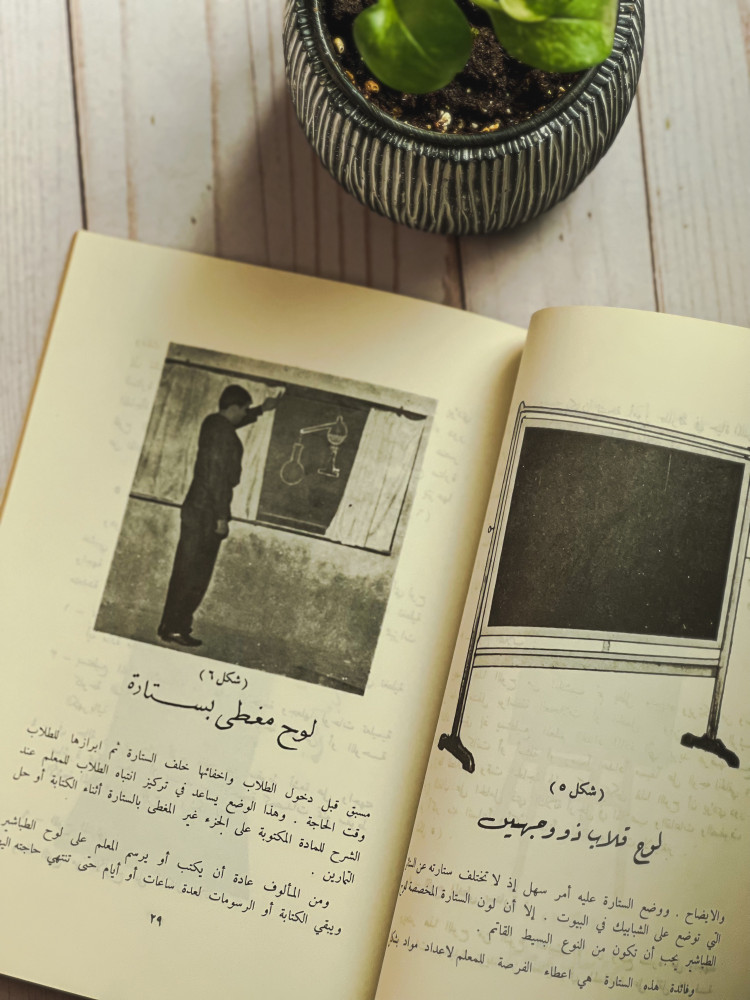 (شكل ٥)
لوح قلاب ذو وجهين
والايضاح . ووضع الستارة عليه أمر سهل إذ لا تختلف ستارته عن
التي توضع على الشبابيك في البيوت . إلا أن لون الستارة المخصصة
الطباشير يجب أن تكون من النوع البسيط القاتم .
وفائدة هذه الستارة هي اعطاء الفرصة للمعلم لاعداد مواد
(شكل ٦)
لوح مغطى بستارة
مسبق قبل دخول الطلاب واخفائها خلف الستارة ثم ابرازها للطلاب
وقت الحاجة . وهذا الوضع يساعد في تركيز انتباه الطلاب للمعلم عند
الشرح للمادة المكتوبة على الجزء غير المغطى بالستارة أثناء الكتابة أو حل
التمارين .
ومن المألوف عادة أن يكتب أو يرسم المعلم على لوح الطباشير
ويبقي الكتابة أو الرسومات لعدة ساعات أو أيام حتى تنتهي حاجته
٢٩